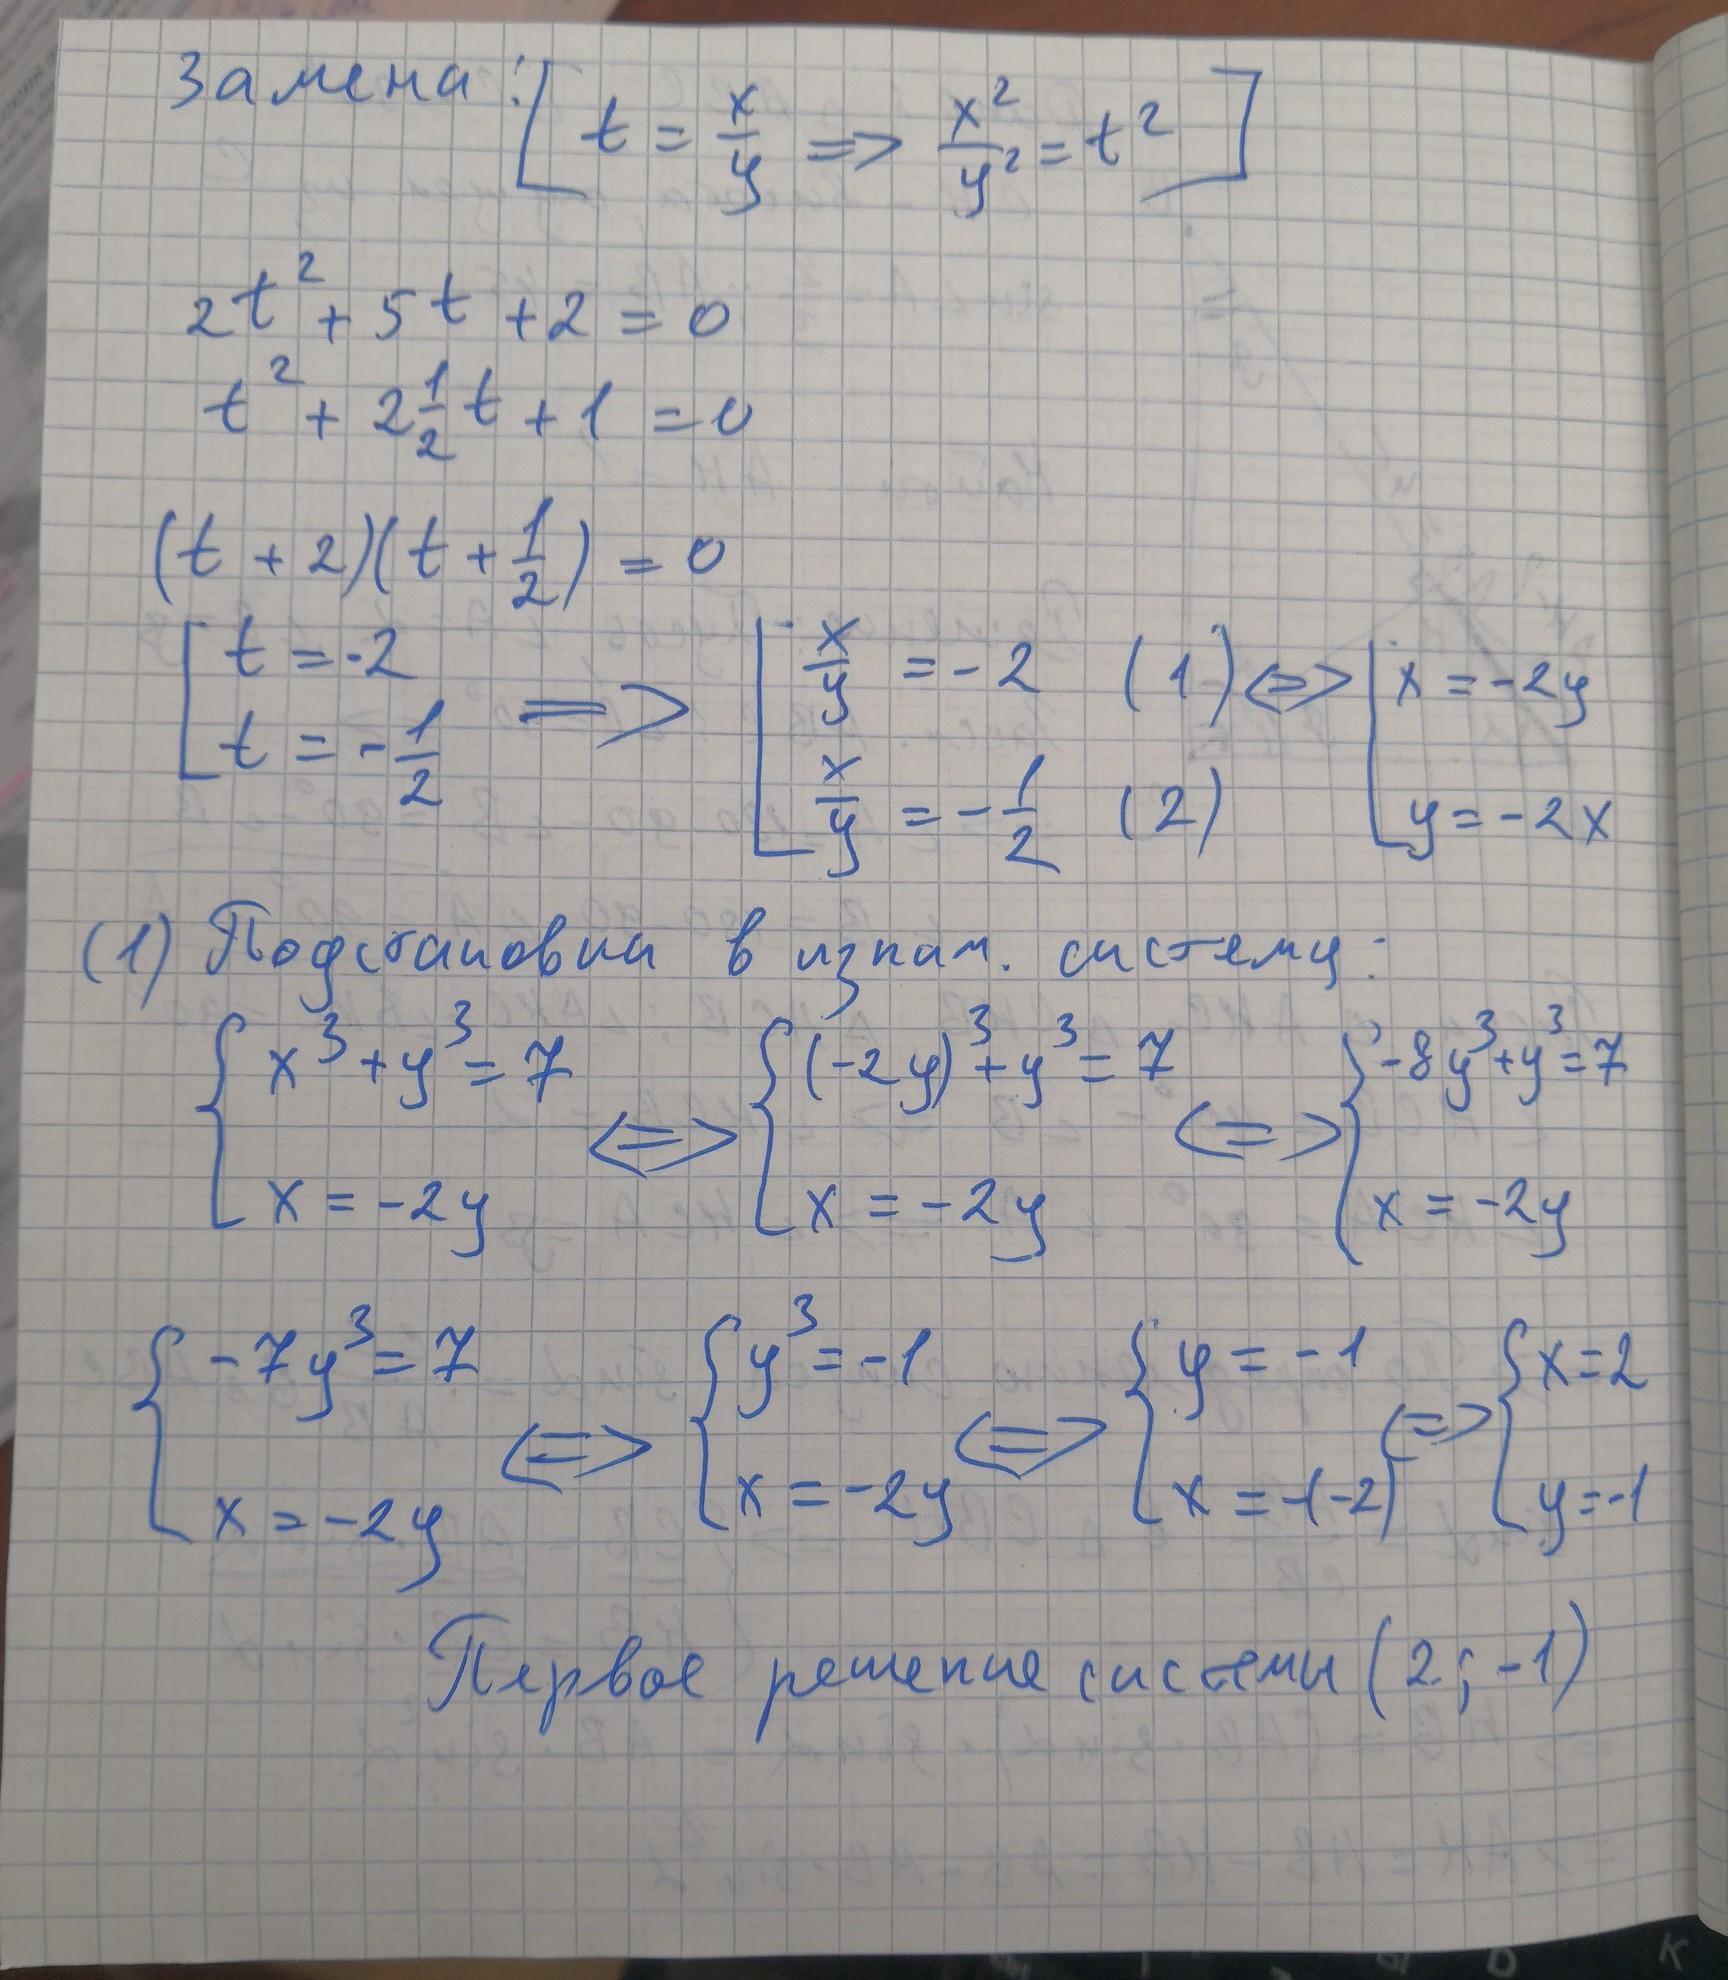 Замена: [ t = x/y => x²/y² = t² ]
2t² + 5t + 2 = 0
t² + 2 1/2 t + 1 = 0
(t + 2)(t + 1/2) = 0
[ t = -2 => [ x/y = -2 (1) <=> [ x = -2y
t = -1/2 x/y = -1/2 (2) y = -2x
(1) Подстановка в изнач. систему:
{ x³ + y³ = 7 <=> { (-2y)³ + y³ = 7 <=> { -8y³ + y³ = 7
x = -2y x = -2y x = -2y
{ -7y³ = 7 <=> { y³ = -1 <=> { y = -1 <=> { x = 2
x = -2y x = -2y x = -(-2) y = -1
Первое решение системы (2; -1)